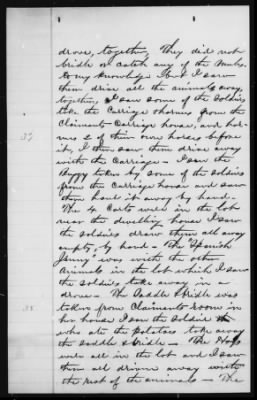 drove, together, They did not
bridle or catch any of the mules,
to my knowledge but I saw
them drive all the animals away,
together, I saw some of the soldiers
take the Carriage & harness from the
Claimants Carriage house, and har-
37
ness 2 of their own horses before
it, I then saw them drive away
with the Carriage — I saw the
Buggy taken by some of the soldiers
from the Carriage house and saw
them haul it away by hand.
The 4 Carts were in the lot
near the dwelling house I saw
the soldiers draw them all away
empty, by hand — The "Spanish
Jenny" was with the other
animals in the lot which I saw
the soldiers take away in a
drove — The Saddle & bridle was
38
taken from Claimants room in
her house I saw the soldier
who ate the potatoes take away
the Saddle & bridle — The Hogs
were all in the lot and I saw
them all driven away with
the rest of the animals — The